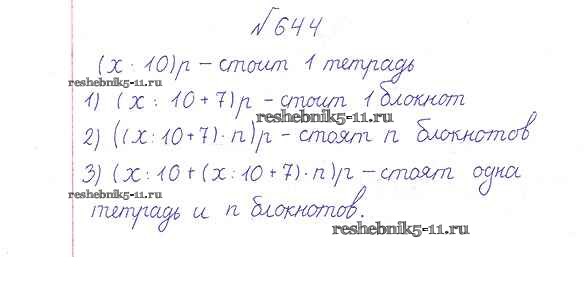 № 644
(x : 10)р – стоит 1 тетрадь
reshebnik5-11.ru
1) (x : 10 + 7)р – стоит 1 блокнот
reshebnik5-11.ru
2) ((x : 10 + 7) · n)р – стоят n блокнотов
3) (x : 10 + (x : 10 + 7) · n)р – стоят одна
reshebnik5-11.ru
тетрадь и n блокнотов.
reshebnik5-11.ru